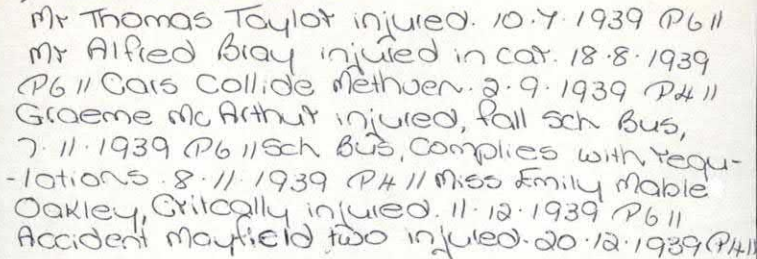 Mr Thomas Taylor injured. 10.7.1939 P6 //
Mr Alfred Bray injured in car. 18.8.1939
P6 // Cars Collide Methven. 2.9.1939 P4 //
Graeme McArthur injured, fall Sch Bus,
7.11.1939 P6 // Sch Bus, Complies with regu-
-lations. 8.11.1939 P4 // Miss Emily Mable
Oakley, Critcally injured. 11.12.1939 P6 //
Accident Mayfield two injured. 20.12.1939 P4 //